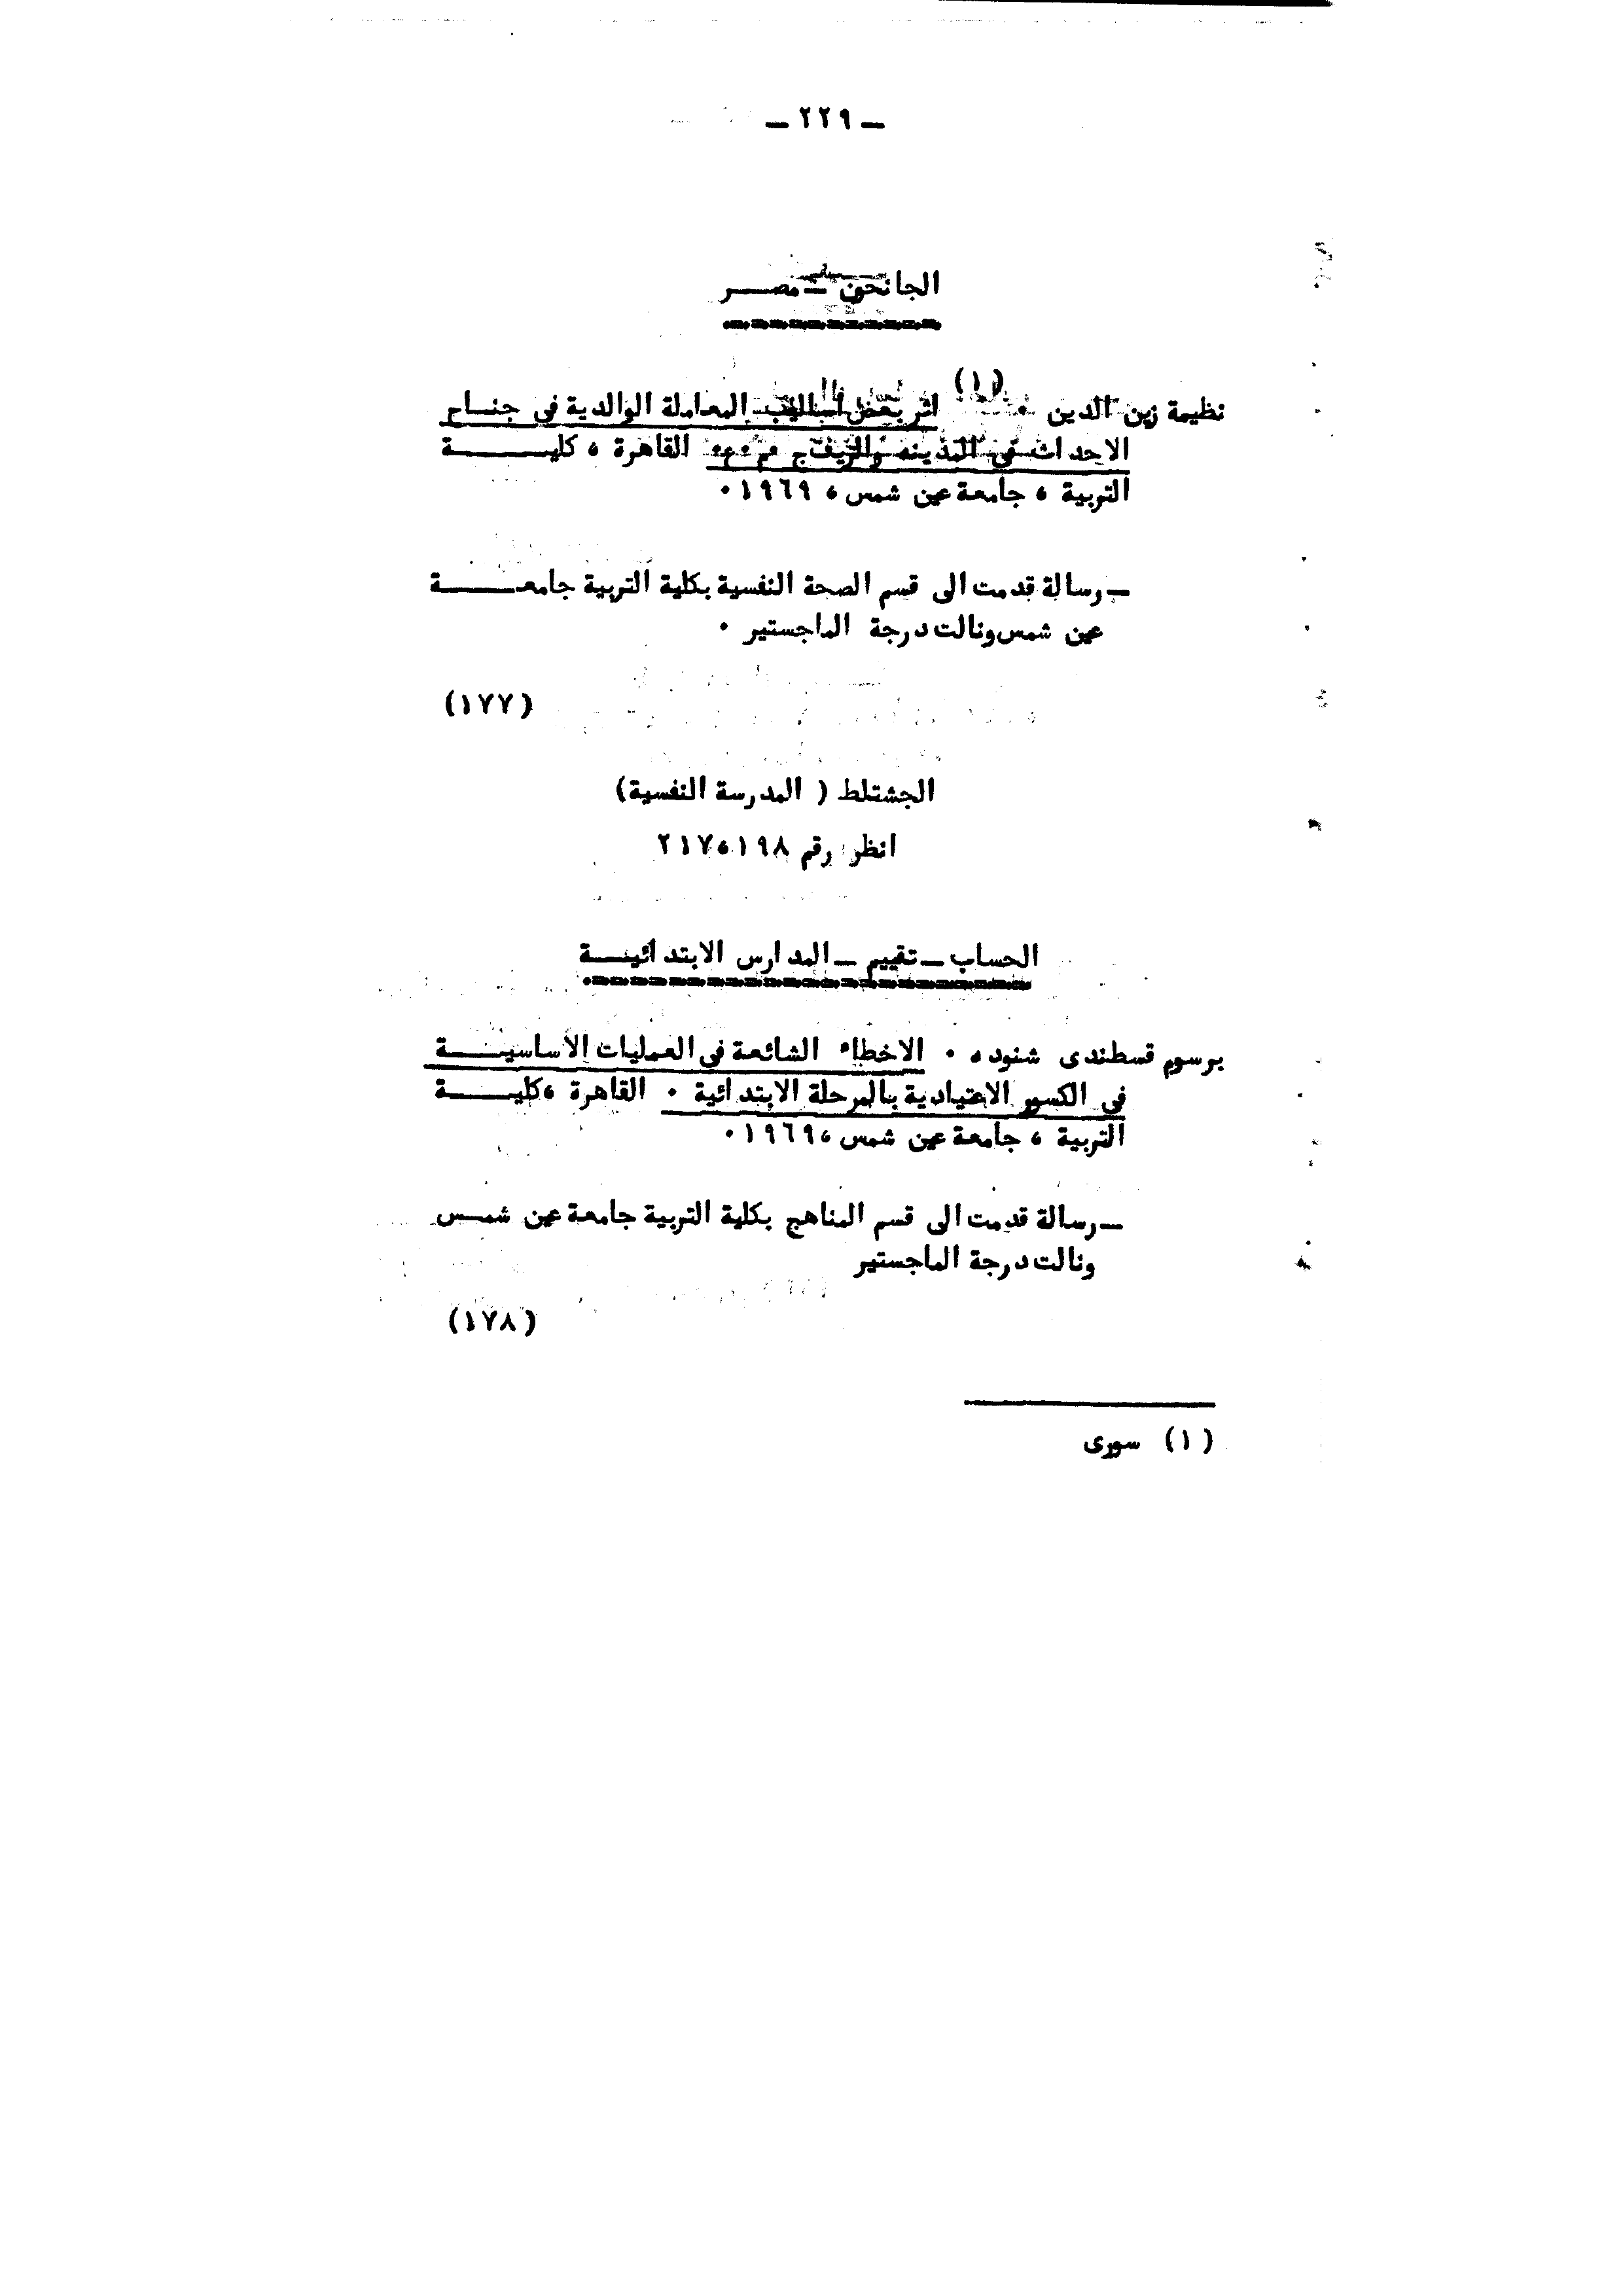 — ٢٢٩ —
الجانحون — مصر
نظيمة زين الدين (١) . اثر بعض اساليب المعاملة الوالدية فى جناح
الاحداث فى المدينه والريف ج م ع . القاهرة ، كلية
التربية ، جامعة عين شمس ، ١٩٦٩ .
— رسالة قدمت الى قسم الصحة النفسية بكلية التربية جامعة
عين شمس ونالت درجة الماجستير .
(١٧٧)
الجشتلط ( المدرسة النفسية)
انظر رقم ١٩٨ ، ٢١٧
الحساب — تقييم — المدارس الابتدائية
برسوم قسطندى شنوده . الاخطاء الشائعة فى العمليات الاساسية
فى الكسور الاعتيادية بالمرحلة الابتدائية . القاهرة ، كلية
التربية ، جامعة عين شمس ، ١٩٦٩ .
— رسالة قدمت الى قسم المناهج بكلية التربية جامعة عين شمس
ونالت درجة الماجستير
(١٧٨)
(١) سورى